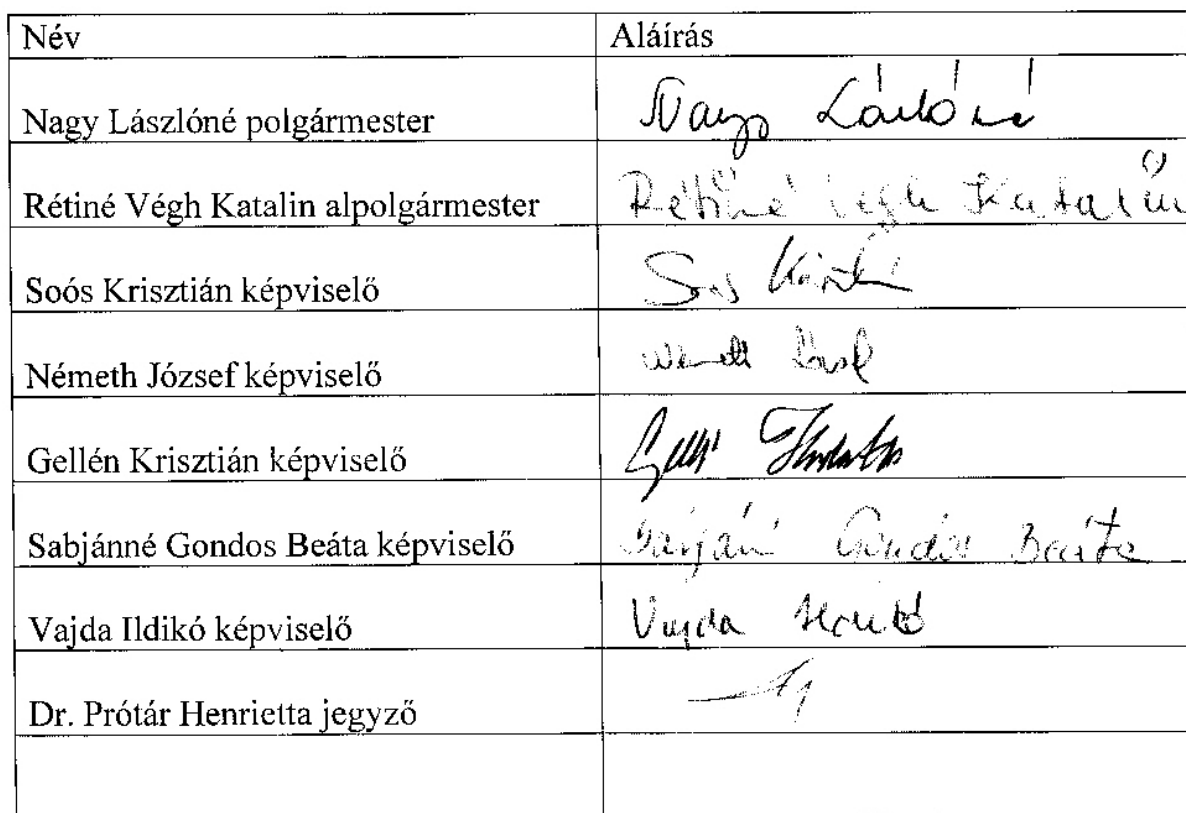 Név Aláírás
Nagy Lászlóné polgármester Nagy Lászlóné
Rétiné Végh Katalin alpolgármester Rétiné Végh Katalin
Soós Krisztián képviselő Soós
Németh József képviselő
Gellén Krisztián képviselő
Sabjánné Gondos Beáta képviselő Gondos Beáta
Vajda Ildikó képviselő Vajda Ildikó
Dr. Prótár Henrietta jegyző